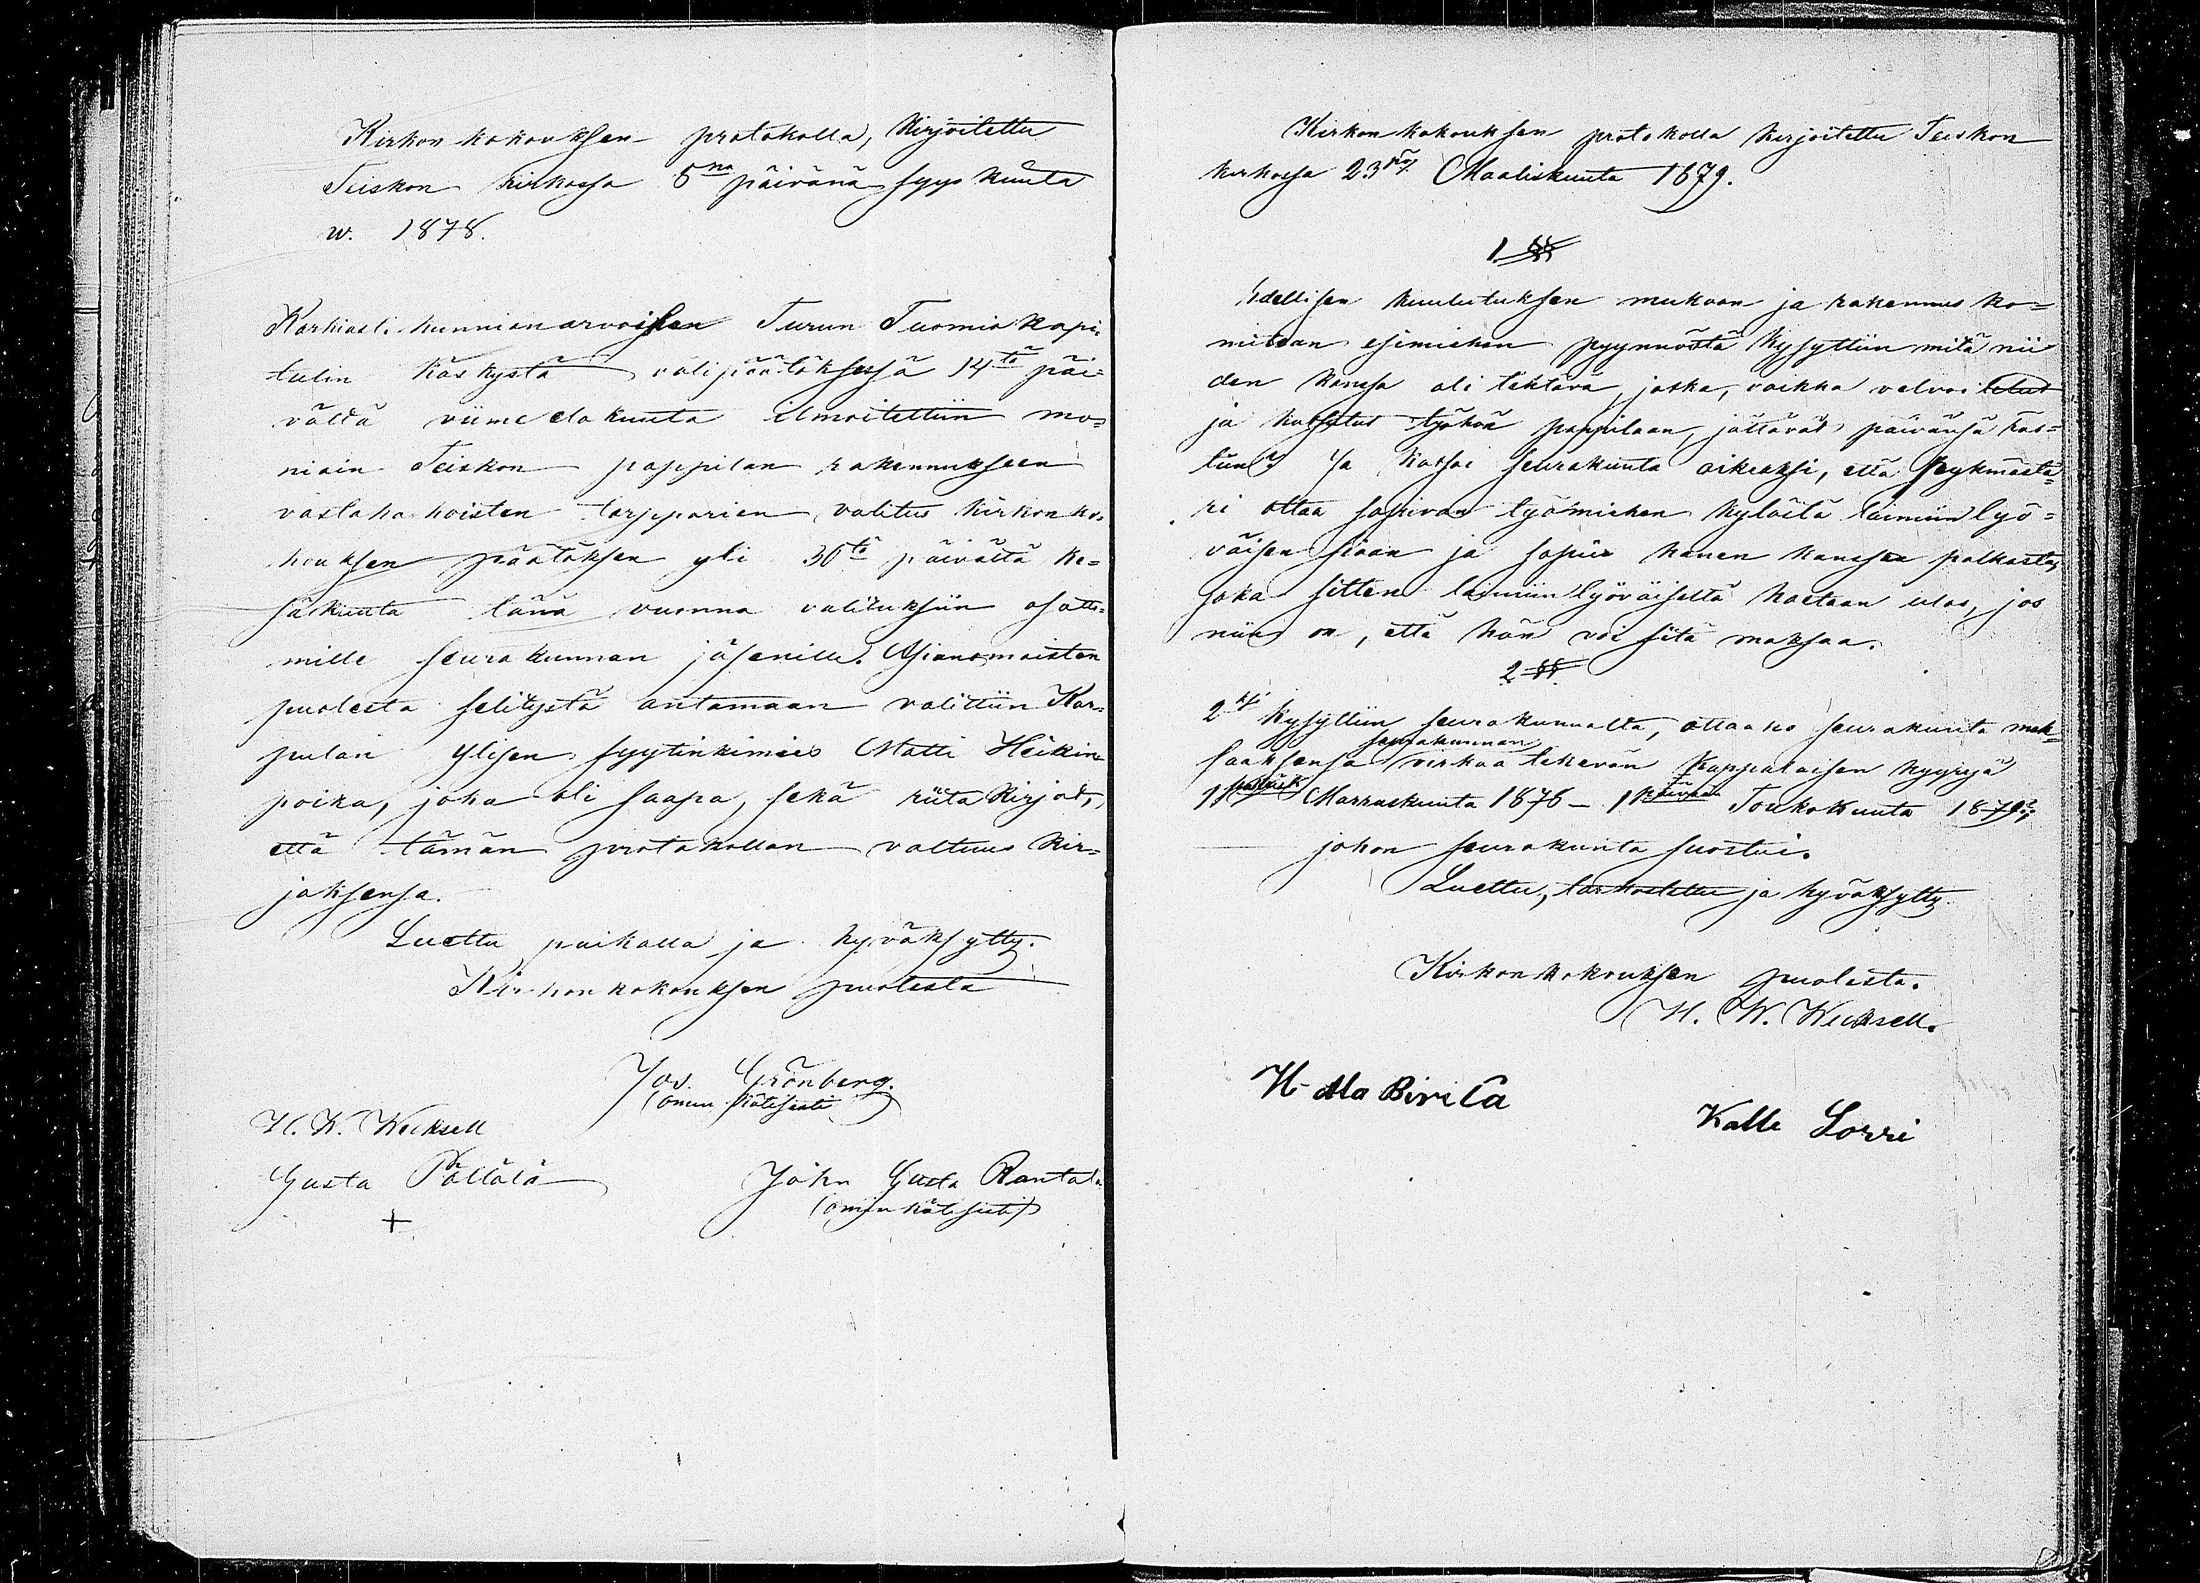 Kirkon kokouksen protokolla, kirjoitettu
Teiskon kirkossa 8na päivänä syys kuuta
w. 1878.
Korkiasti kunnianarvoisen Turun Tuomio Kapi-
tulin käskystä välipäätöksessä 14tä päi-
vältä viime elokuuta ilmoitettiin mo-
niain Teiskon pappilan rakennukseen
vastahakoisten torpparien valitus kirkon ko-
kouksen päätöksen yli 30tä päivältä ke-
säkuuta tänä vuonna valituksiin osatto-
mille seurakunnan jäsenille. Asianomaisten
puolesta selitystä antamaan valittiin Kar-
pulan Ylisen syytinkimies Matti Heikin-
poika, joka oli saapa, sekä riita kirjat,
että tämän protokollan valtuus kir-
jaksensa.
Luettu paikalla ja hyväksytty.
Kirkon kokouksen puolesta
Jos. Grönberg.
(oman kätisesti)
H. W. Wecksell
Gusta Pällälä
+
John Gusta Rantala
(oman kätisesti)
Kirkon kokouksen protokolla kirjoitettu Teiskon
kirkossa 23 p. Maaliskuuta 1879.
1 §§
Edellisen kuulutuksen mukaan ja rakennus ko-
mitean esimiehen pyynnöstä kysyttiin mitä nii
den kanssa oli tehtävä, jotka, vaikka velvoitetut
ja kutsutut työhön pappilaan, jättävät päivänsä täs-
tiin? Ja katsoi seurakunta oikeaksi, että Rykmästa-
ri ottaa sopivan työmiehen kylältä laimiin lyö-
väisen siaan ja sopii hänen kanssaa palkasta,
joka sitten laimiin lyöväiseltä haetaan ulos, jos
niin on, että hän voi sitä maksaa.
2 §§
2ksi kysyttiin seurakunnalta, ottaako seurakunta mak-
saaksensa seurakunnan virkaa tekevän Kappalaisen hyyryä
1 Marraskuuta 1878 – 1 päivään Toukokuuta 1879?;
johon seurakunta suostui.
Luettu, tarkastettu ja hyväksytty.
Kirkon kokouksen puolesta.
H. W. Wecksell.
Kalle Sorri